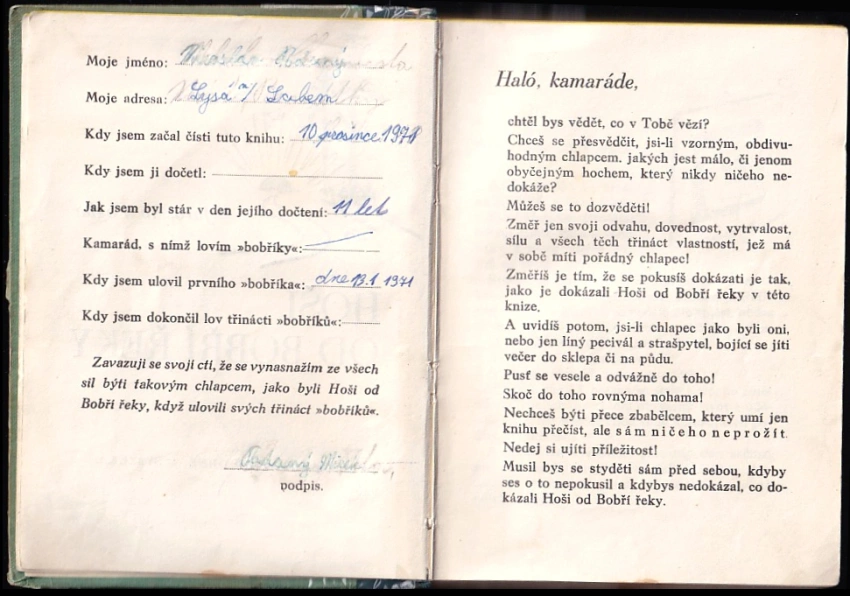 Moje jméno:
Moje adresa: Lysá n/ Labem
Kdy jsem začal čísti tuto knihu: 10 prosince 1970
Kdy jsem ji dočetl:
Jak jsem byl stár v den jejího dočtení: 11 let
Kamarád, s nímž lovím »bobříky«:
Kdy jsem ulovil prvního »bobříka«: dne 13.1 1971
Kdy jsem dokončil lov třinácti »bobříků«:
Zavazuji se svojí ctí, že se vynasnažím ze všech
sil býti takovým chlapcem, jako byli Hoši od
Bobří řeky, když ulovili svých třináct »bobříků«.
podpis.
Haló, kamaráde,
chtěl bys vědět, co v Tobě vězí?
Chceš se přesvědčit, jsi-li vzorným, obdivu-
hodným chlapcem, jakých jest málo, či jenom
obyčejným hochem, který nikdy ničeho ne-
dokáže?
Můžeš se to dozvěděti!
Změř jen svoji odvahu, dovednost, vytrvalost,
sílu a všech těch třináct vlastností, jež má
v sobě míti pořádný chlapec!
Změříš je tím, že se pokusíš dokázati je tak,
jako je dokázali Hoši od Bobří řeky v této
knize.
A uvidíš potom, jsi-li chlapec jako byli oni,
nebo jen líný pecivál a strašpytel, bojící se jíti
večer do sklepa či na půdu.
Pusť se vesele a odvážně do toho!
Skoč do toho rovnýma nohama!
Nechceš býti přece zbabělcem, který umí jen
knihu přečíst, ale sám ničeho neprožít.
Nedej si ujíti příležitost!
Musil bys se styděti sám před sebou, kdyby
ses o to nepokusil a kdybys nedokázal, co do-
kázali Hoši od Bobří řeky.